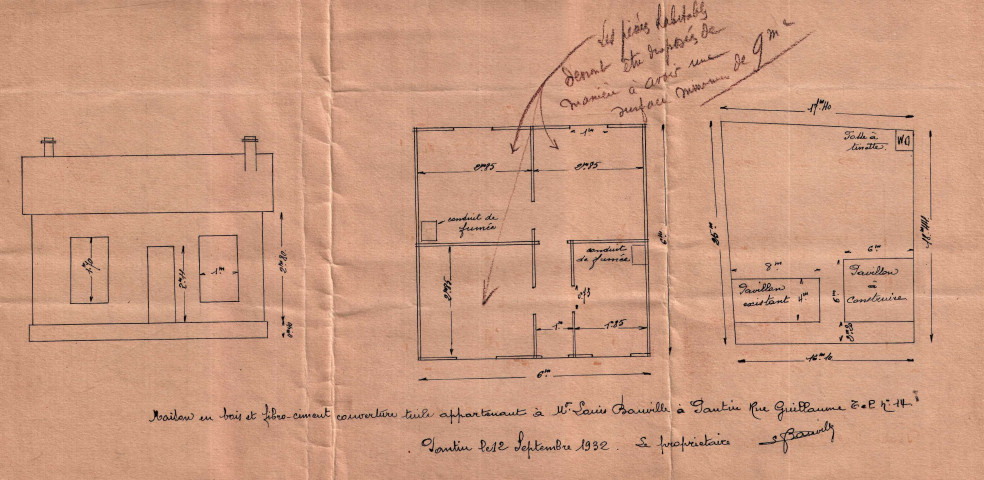 Les pièces habitables
devront être disposées de
manière à avoir une
surface minimum de 9 m²
17m40
Fosse à
tinette.
WC
1m
2m85
2m85
conduit de
fumée
conduit
de fumée
6m
1m70
1m
2m80
2m85
0.73
1m
1m85
6m
8m
6m
Pavillon
existant
4m
6m
Pavillon
à
construire
16m10
Maison en bois et fibro-ciment couverture tuile appartenant à Mr Louis Bauville à Pantin Rue Guillaume Tell No 14
Pantin le 12 Septembre 1932. Le propriétaire